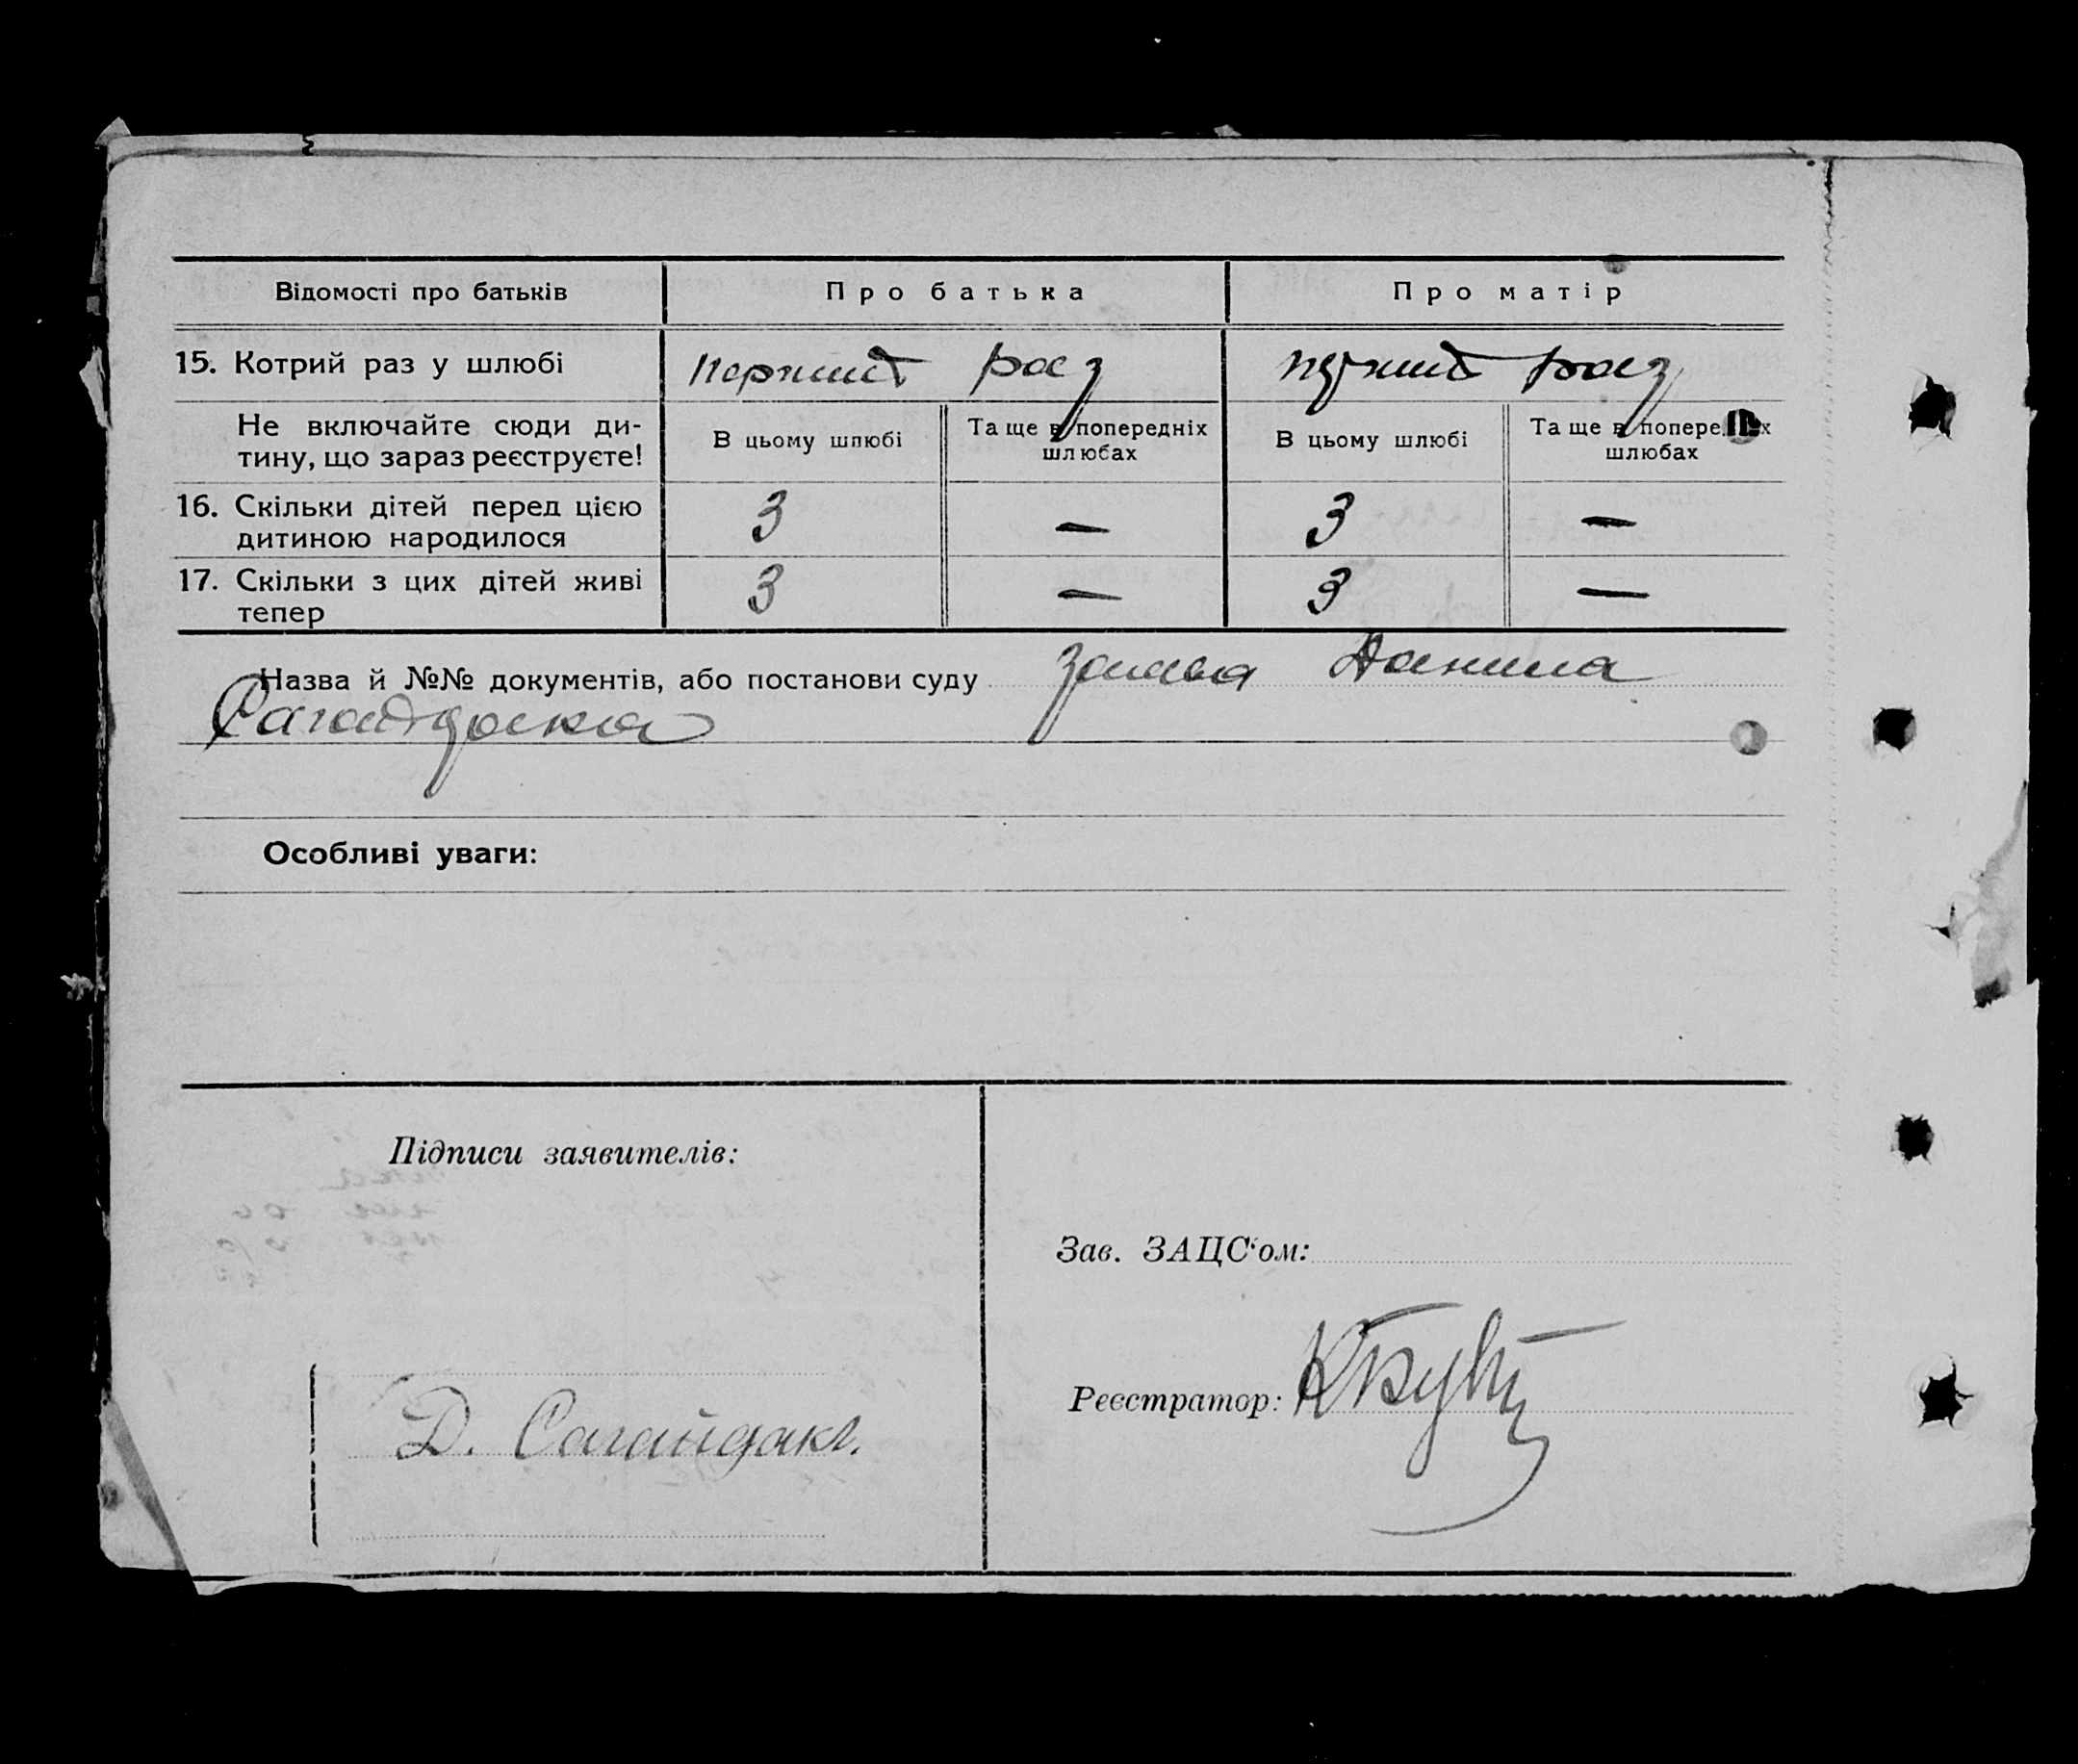 Відомості про батьків Про батька Про матір
15. Котрий раз у шлюбі перший раз перший раз
Не включайте сюди ди-
тину, що зараз реєструєте!
В цьому шлюбі Та ще в попередніх
шлюбах
В цьому шлюбі Та ще в попередніх
шлюбах
16. Скільки дітей перед цією
дитиною народилося 3 — 3 —
17. Скільки з цих дітей живі
тепер 3 — 3 —
Назва й №№ документів, або постанови суду заява Данила
Сагайдака
Особливі уваги:
Підписи заявителів:
Зав. ЗАЦС'ом:
Реєстратор:
Д. Сагайдак